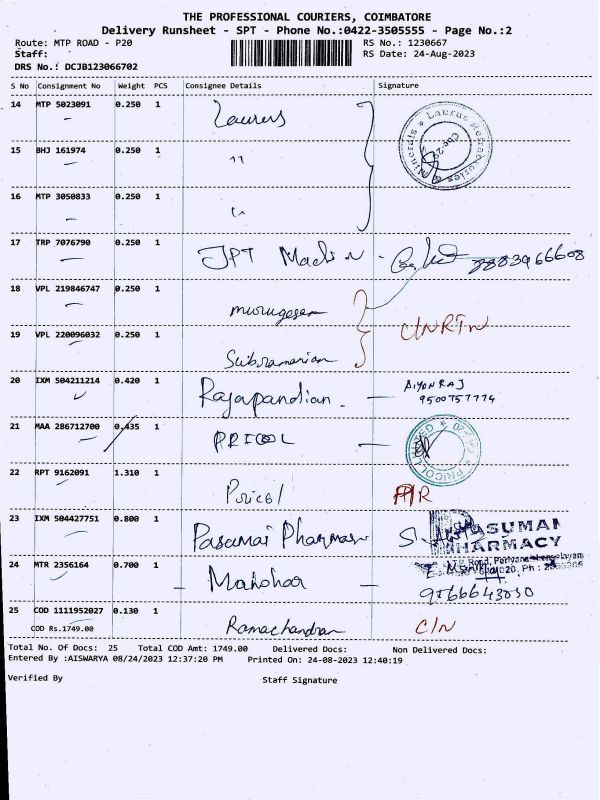 THE PROFESSIONAL COURIERS, COIMBATORE
Delivery Runsheet - SPT - Phone No.:0422-3505555 - Page No.:2
Route: MTP ROAD - P20 RS No.: 1230667
Staff: RS Date: 24-Aug-2023
DRS No.: DCJB123066702
S No Consignment No Weight PCS Consignee Details Signature
14 MTP 5023091 0.250 1 Laurus
Laurus Refractories & Minerals
Cbe-29
15 BHJ 161974 0.250 1 "
16 MTP 3050833 0.250 1 "
17 TRP 7076790 0.250 1 JPT 8883966608
18 VPL 219846747 0.250 1 murugesan
C/NRTN
19 VPL 220096032 0.250 1 Subramanian
20 IXM 504211214 0.420 1 Rajapandian. - 
9500757774
21 MAA 286712700 0.435 1 PRICOL -
PRICOL LIMITED
22 RPT 9162091 1.310 1 Pricol
23 IXM 504427751 0.800 1 Pasumai Pharmasy
PASUMAI
PHARMACY
24 MTR 2356164 0.700 1 - Manohar -
9566643030
25 COD 1111952027 0.130 1 Ramachandran C/N
COD Rs.1749.00
Total No. Of Docs: 25 Total COD Amt: 1749.00 Delivered Docs: Non Delivered Docs:
Entered By :AISWARYA 08/24/2023 12:37:20 PM Printed On: 24-08-2023 12:40:19
Verified By Staff Signature